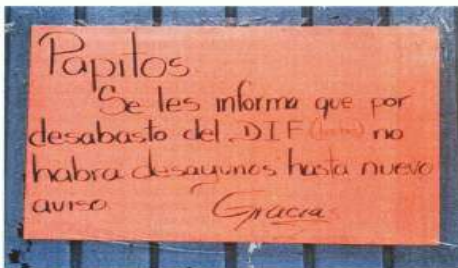 Papitos.
Se les informa que por
desabasto del DIF (leche) no
habra desayunos hasta nuevo
aviso.
Gracias